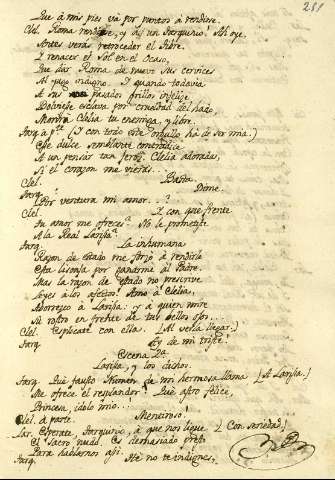 211
Que à mis pies vas por puntos à rendirte.
Clel. Roma rendirse, y à un Tarquino! Ah oye.
Antes verás retroceder el Tibre.
Y renacer el Sol en el Ocaso,
Que dar Roma de nuevo sus cervices
Al yugo indigno. Y quando todavia
A sus pasados grillos infelize
Bolviese esclava por crueldad del hado,
Moriria Clelia tu enemiga, y libre.
Tarq. à pte. (Y con todo este orgullo ha de ser mia.)
Ese dulce semblante contradice
A un pensar tan feroz. Clelia adorada,
Si el corazon me vieras...
Clel. Basta.
Tarq. Dime.
Por ventura mi amor..?
Clel. Y con que frente
Tu amor me ofreces? No le prometiste
A la Real Larisa?
Tarq. La inhumana
Razon de estado me forzó à rendirle
Esta lisonja por ganarme al Padre.
Mas la razon de estado no prescrive
Leyes à los afectos! Amo à Clelia,
Aborrezco à Larisa: y à quien mire
Su rostro en frente de tus bellos ojos...
Clel. Explicate con ella. (Al verla llegar.)
Tarq. Ay de mi triste!
Escena 2ª
Larisa, y los dichos.
Tarq. Què fausto Himen de mi hermosa llama [A Larisa.]
Me ofrece el resplandor! Què astro felice,
Princesa, idolo mio...
Clel. à parte. Mentiroso!
Lar. Esperate, Tarquino, à que nos ligue [Con seriedad]
El sacro nudo. Es demasiado presto
Para hablarnos asi.
Tarq. No te indignes,